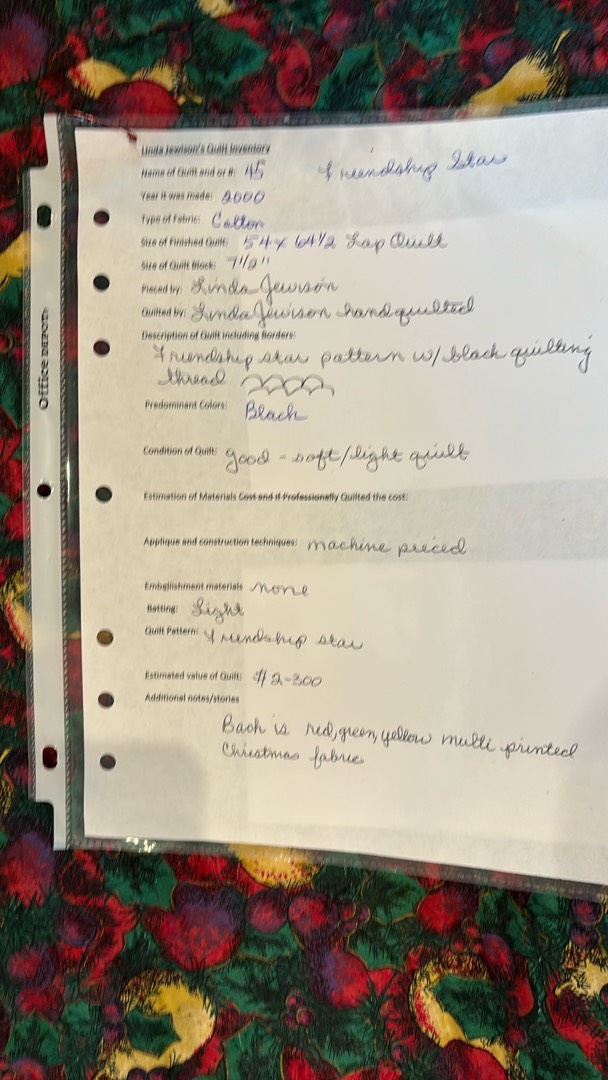 Linda Jewison's Quilt Inventory
Name of Quilt and or #: 45 Friendship Star
Year it was made: 2000
Type of Fabric: Cotton
Size of Finished Quilt: 54 x 64 1/2 Lap Quilt
Size of Quilt Block: 7 1/2"
Pieced by: Linda Jewison
Quilted by: Linda Jewison hand quilted
Description of Quilt including Borders:
Friendship star pattern w/ black quilting
thread
Predominant Colors: Black
Condition of Quilt: good - soft/light quilt
Estimation of Materials Cost and if Professionally Quilted the cost:
Applique and construction techniques: machine pieced
Embellishment materials none
Batting: Light
Quilt Pattern: Friendship star
Estimated value of Quilt: $2-300
Additional notes/stories
Back is red, green, yellow multi printed
Christmas fabric
Office DEPOT